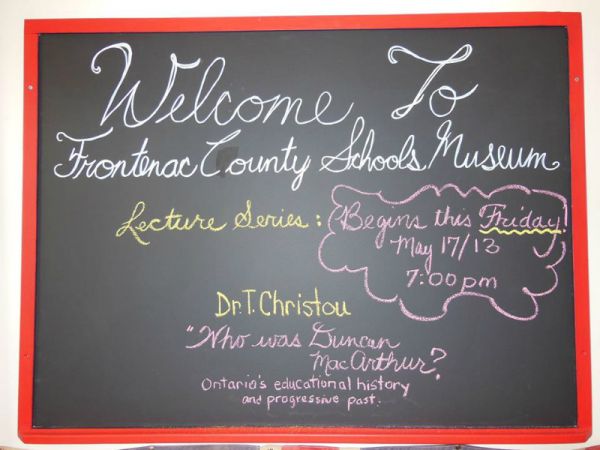 Welcome To
Frontenac County Schools Museum
Lecture Series: Begins this Friday!
May 17/13
7:00 pm
Dr. T. Christou
"Who was Duncan
MacArthur?
Ontario's educational history
and progressive past.